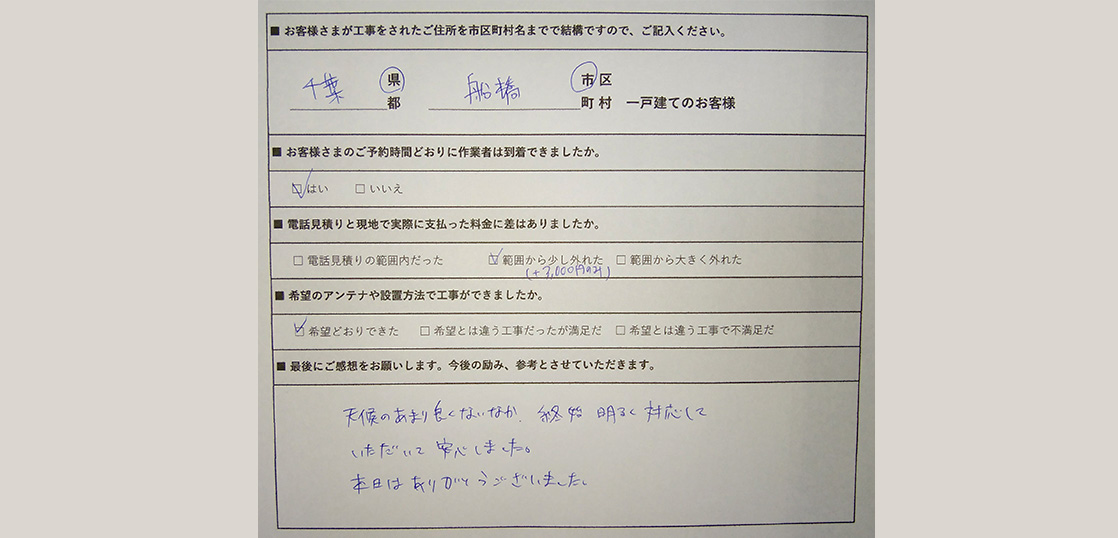 ■ お客様さまが工事をされたご住所を市区町村名までで結構ですので、ご記入ください。
千葉 県 船橋 市 区
都 町 村 一戸建てのお客様
■ お客様さまのご予約時間どおりに作業者は到着できましたか。
☑ はい □ いいえ
■ 電話見積りと現地で実際に支払った料金に差はありましたか。
□ 電話見積りの範囲内だった ☑ 範囲から少し外れた □ 範囲から大きく外れた
(+3,000円のみ)
■ 希望のアンテナや設置方法で工事ができましたか。
☑ 希望どおりできた □ 希望とは違う工事だったが満足だ □ 希望とは違う工事で不満足だ
■ 最後にご感想をお願いします。今後の励み、参考とさせていただきます。
天候のあまり良くないなか、終始 明るく 対応して
いただいて 安心しました。
本日は ありがとうございました。